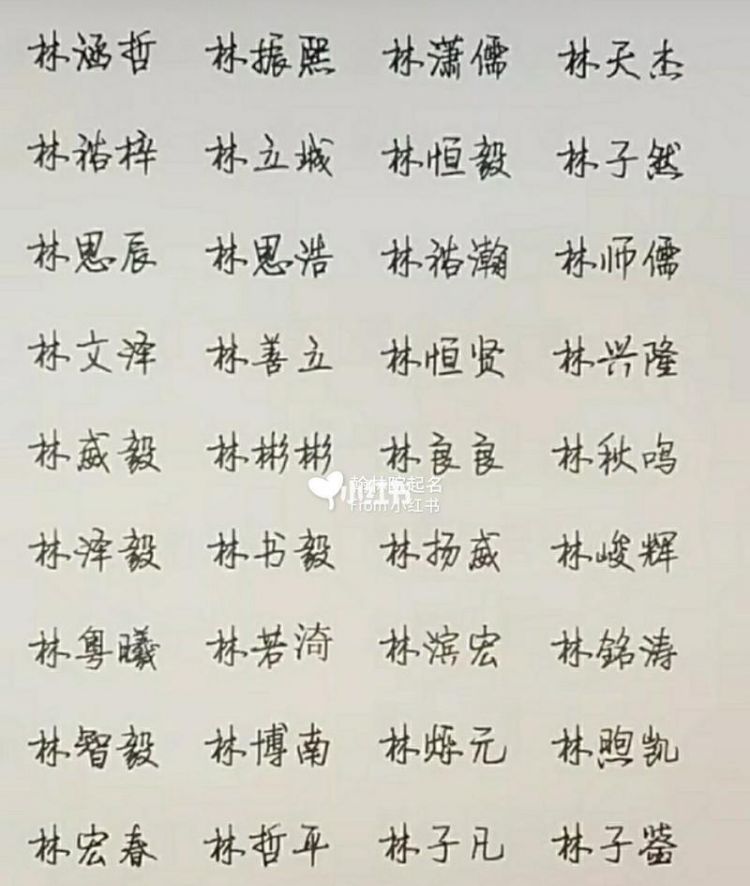 林涵哲 林振熙 林潇儒 林天杰
林祐梓 林立城 林恒毅 林子然
林思辰 林思浩 林祐瀚 林师儒
林文泽 林善立 林恒贤 林兴隆
林威毅 林彬彬 林良良 林秋鸣
小红书
翰林院起名
From 小红书
林泽毅 林书毅 林扬威 林峻辉
林粤曦 林若渏 林滨宏 林铭涛
林智毅 林博南 林烁元 林煦凯
林宏春 林哲平 林子凡 林子蓥